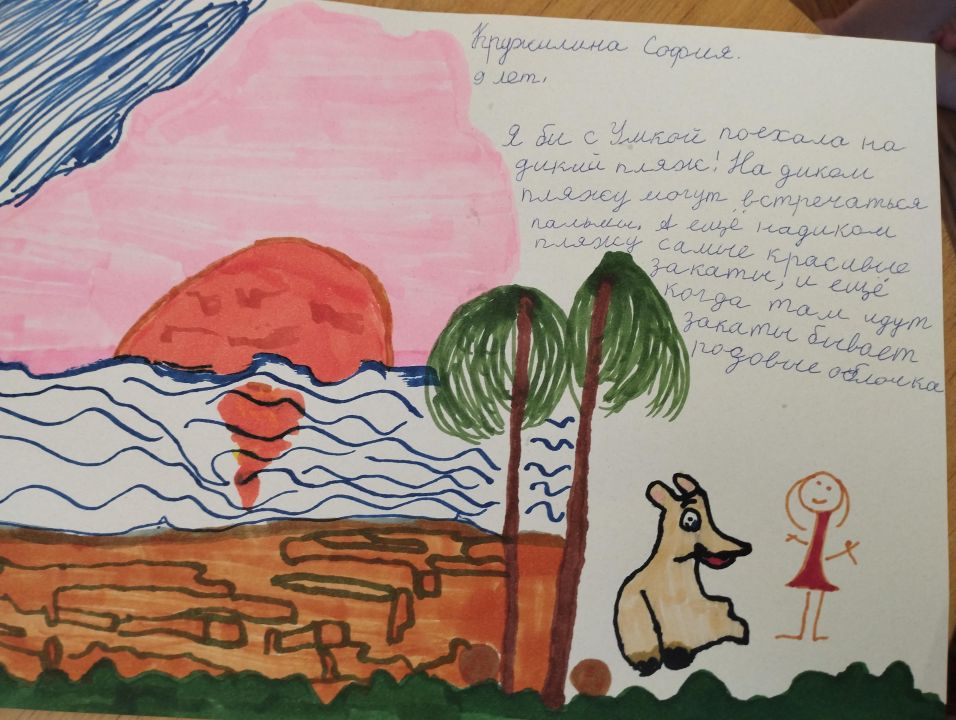 Кружилина София.
9 лет.
Я би с Умкой поехала на
дикий пляж! На диком
пляжу могут встречаться
пальмы. А ещё надиком
пляжу самые красивые
закаты, и ещё
когда там идут
закаты бывает
родовые облочка